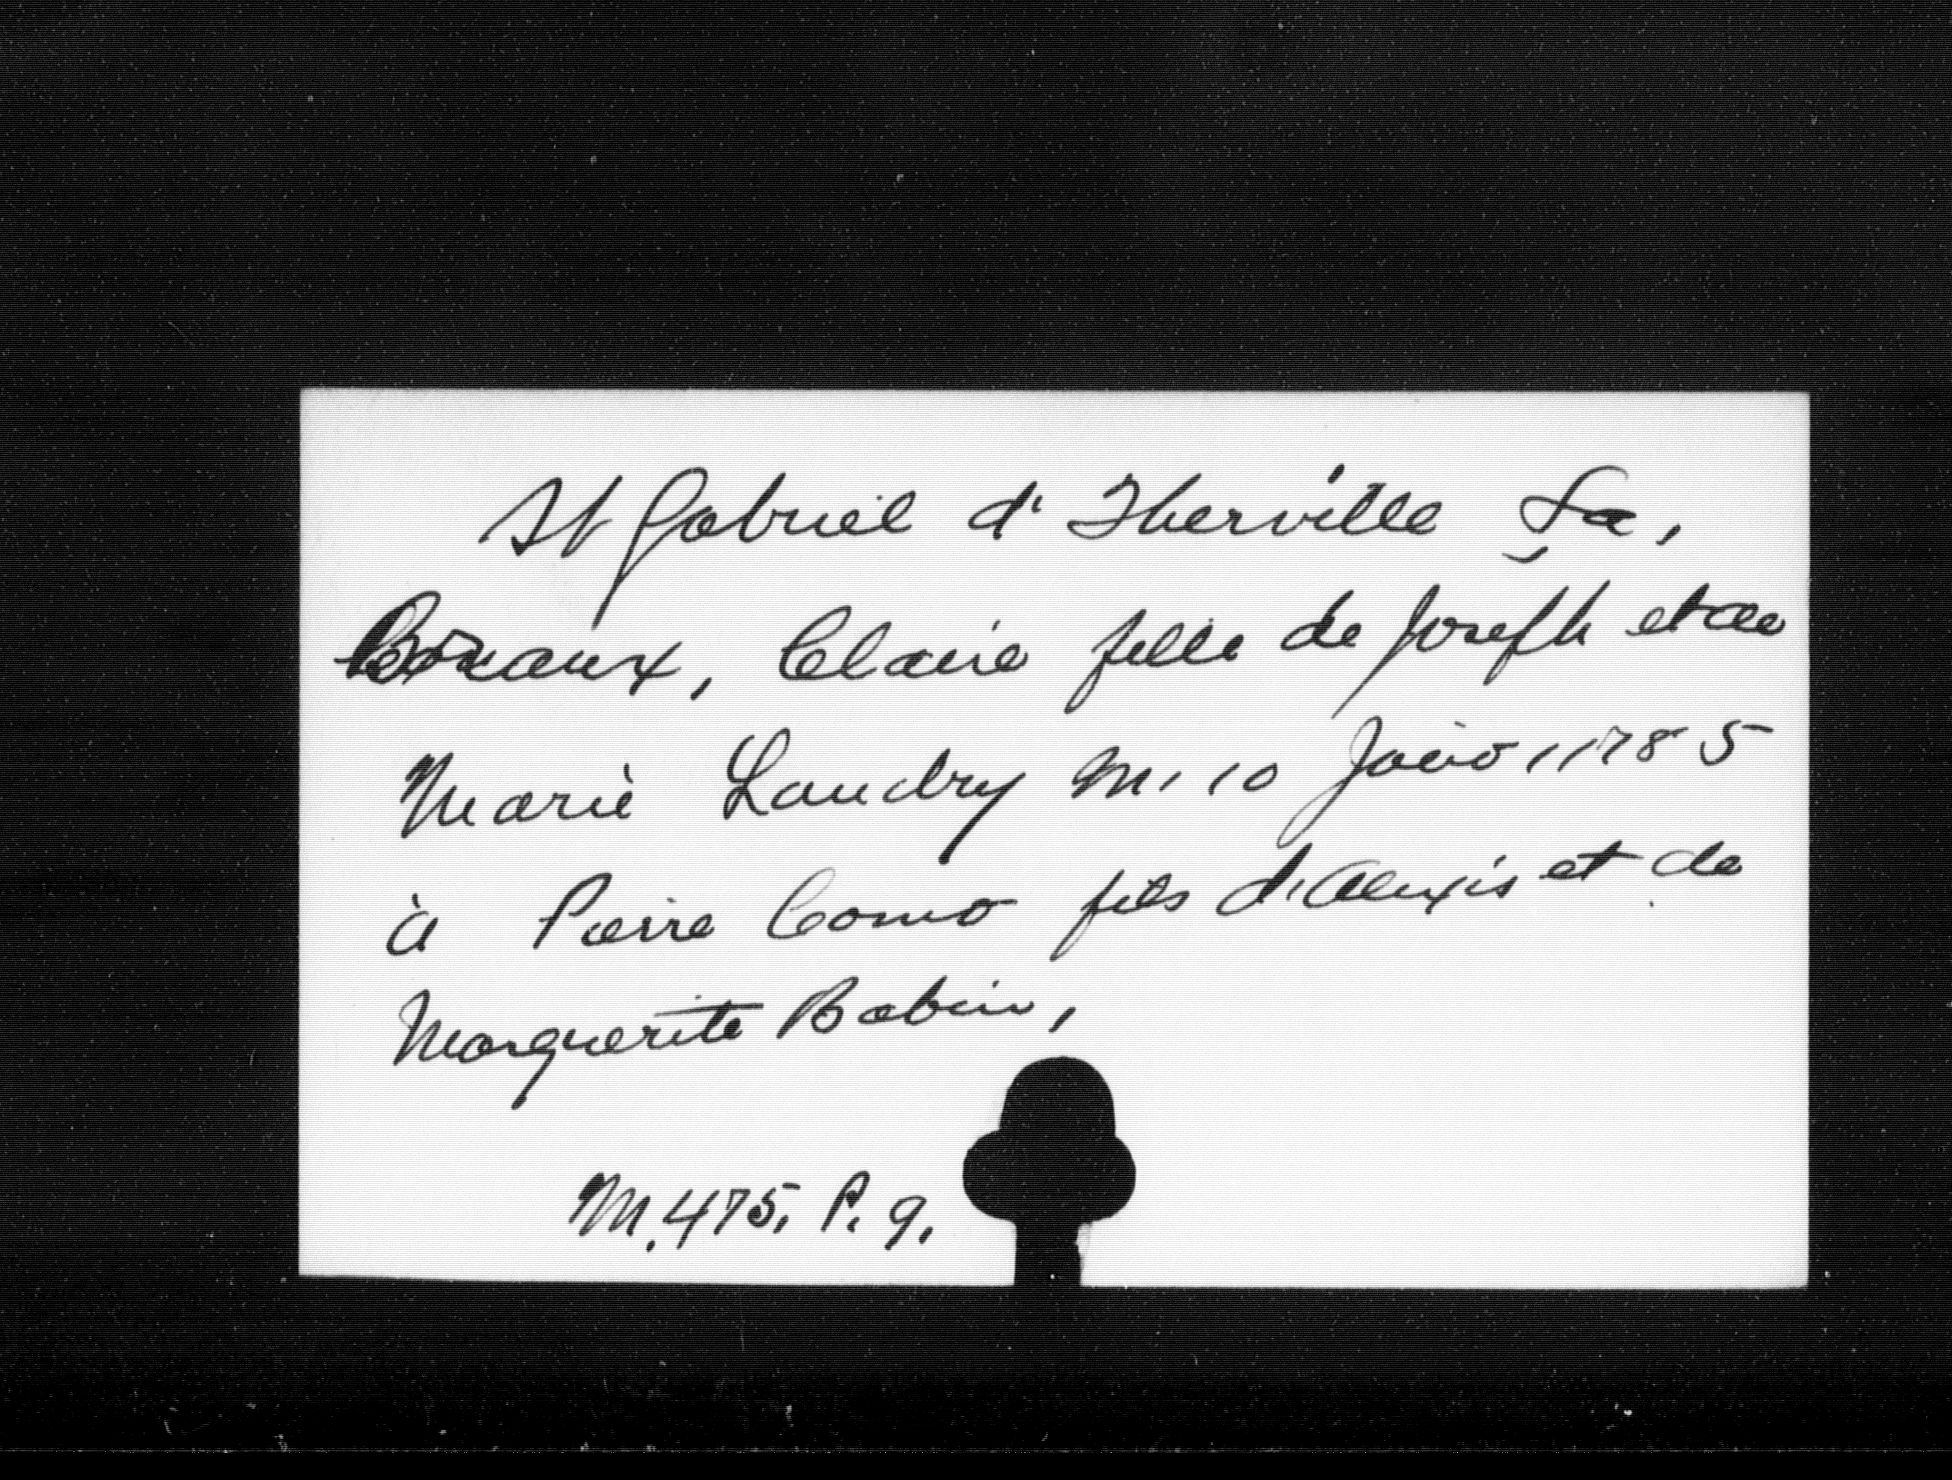 St Gabriel d'Iberville La,
Braux, Claire fille de Joseph et de
Marie Landry m. 10 Janv. 1785
à Pierre Como fils d'Alexis et de
Marguerite Babin,
M. 475. P. 9.